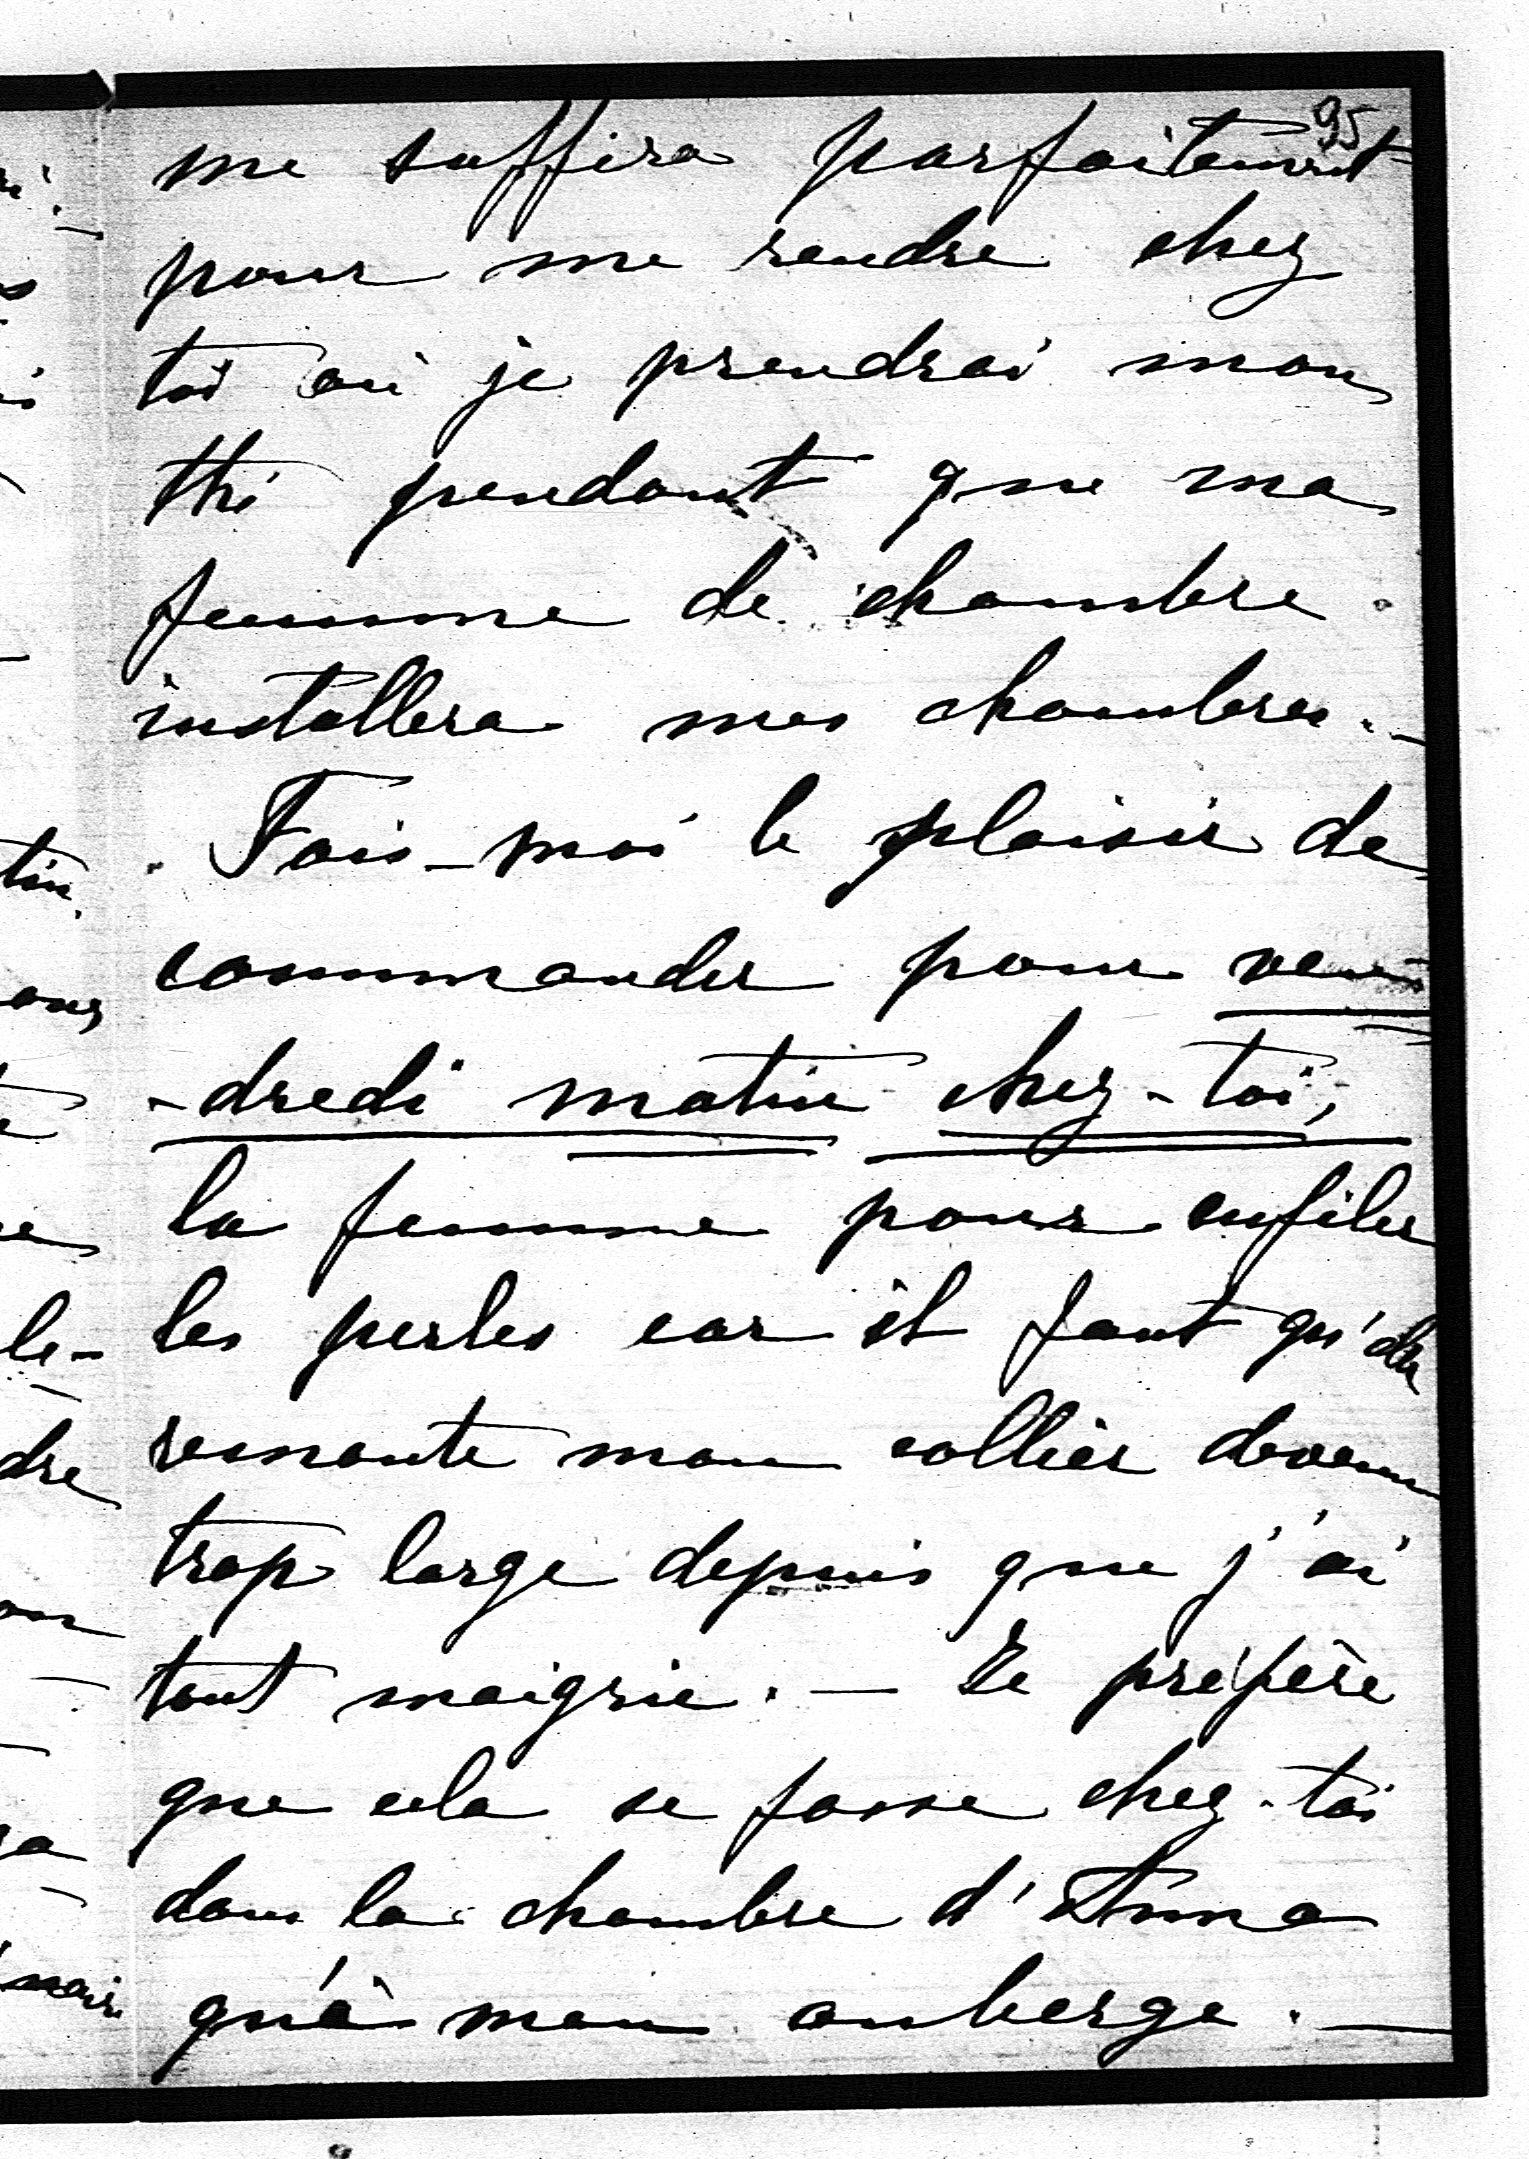 95
me suffira parfaitement
pour me rendre chez
toi où je prendrai mon
thé pendant que ma
femme de chambre
installera mes chambres. —
Fais-moi le plaisir de
commander pour ven
-dredi matin chez-toi,
la femme pour enfiler
les perles car il faut qu'elle
remonte mon collier devenu
trop large depuis que j'ai
tant maigrie. — Je préfère
que cela se fasse chez-toi
dans la chambre d'Anna
qu'à mon auberge. —